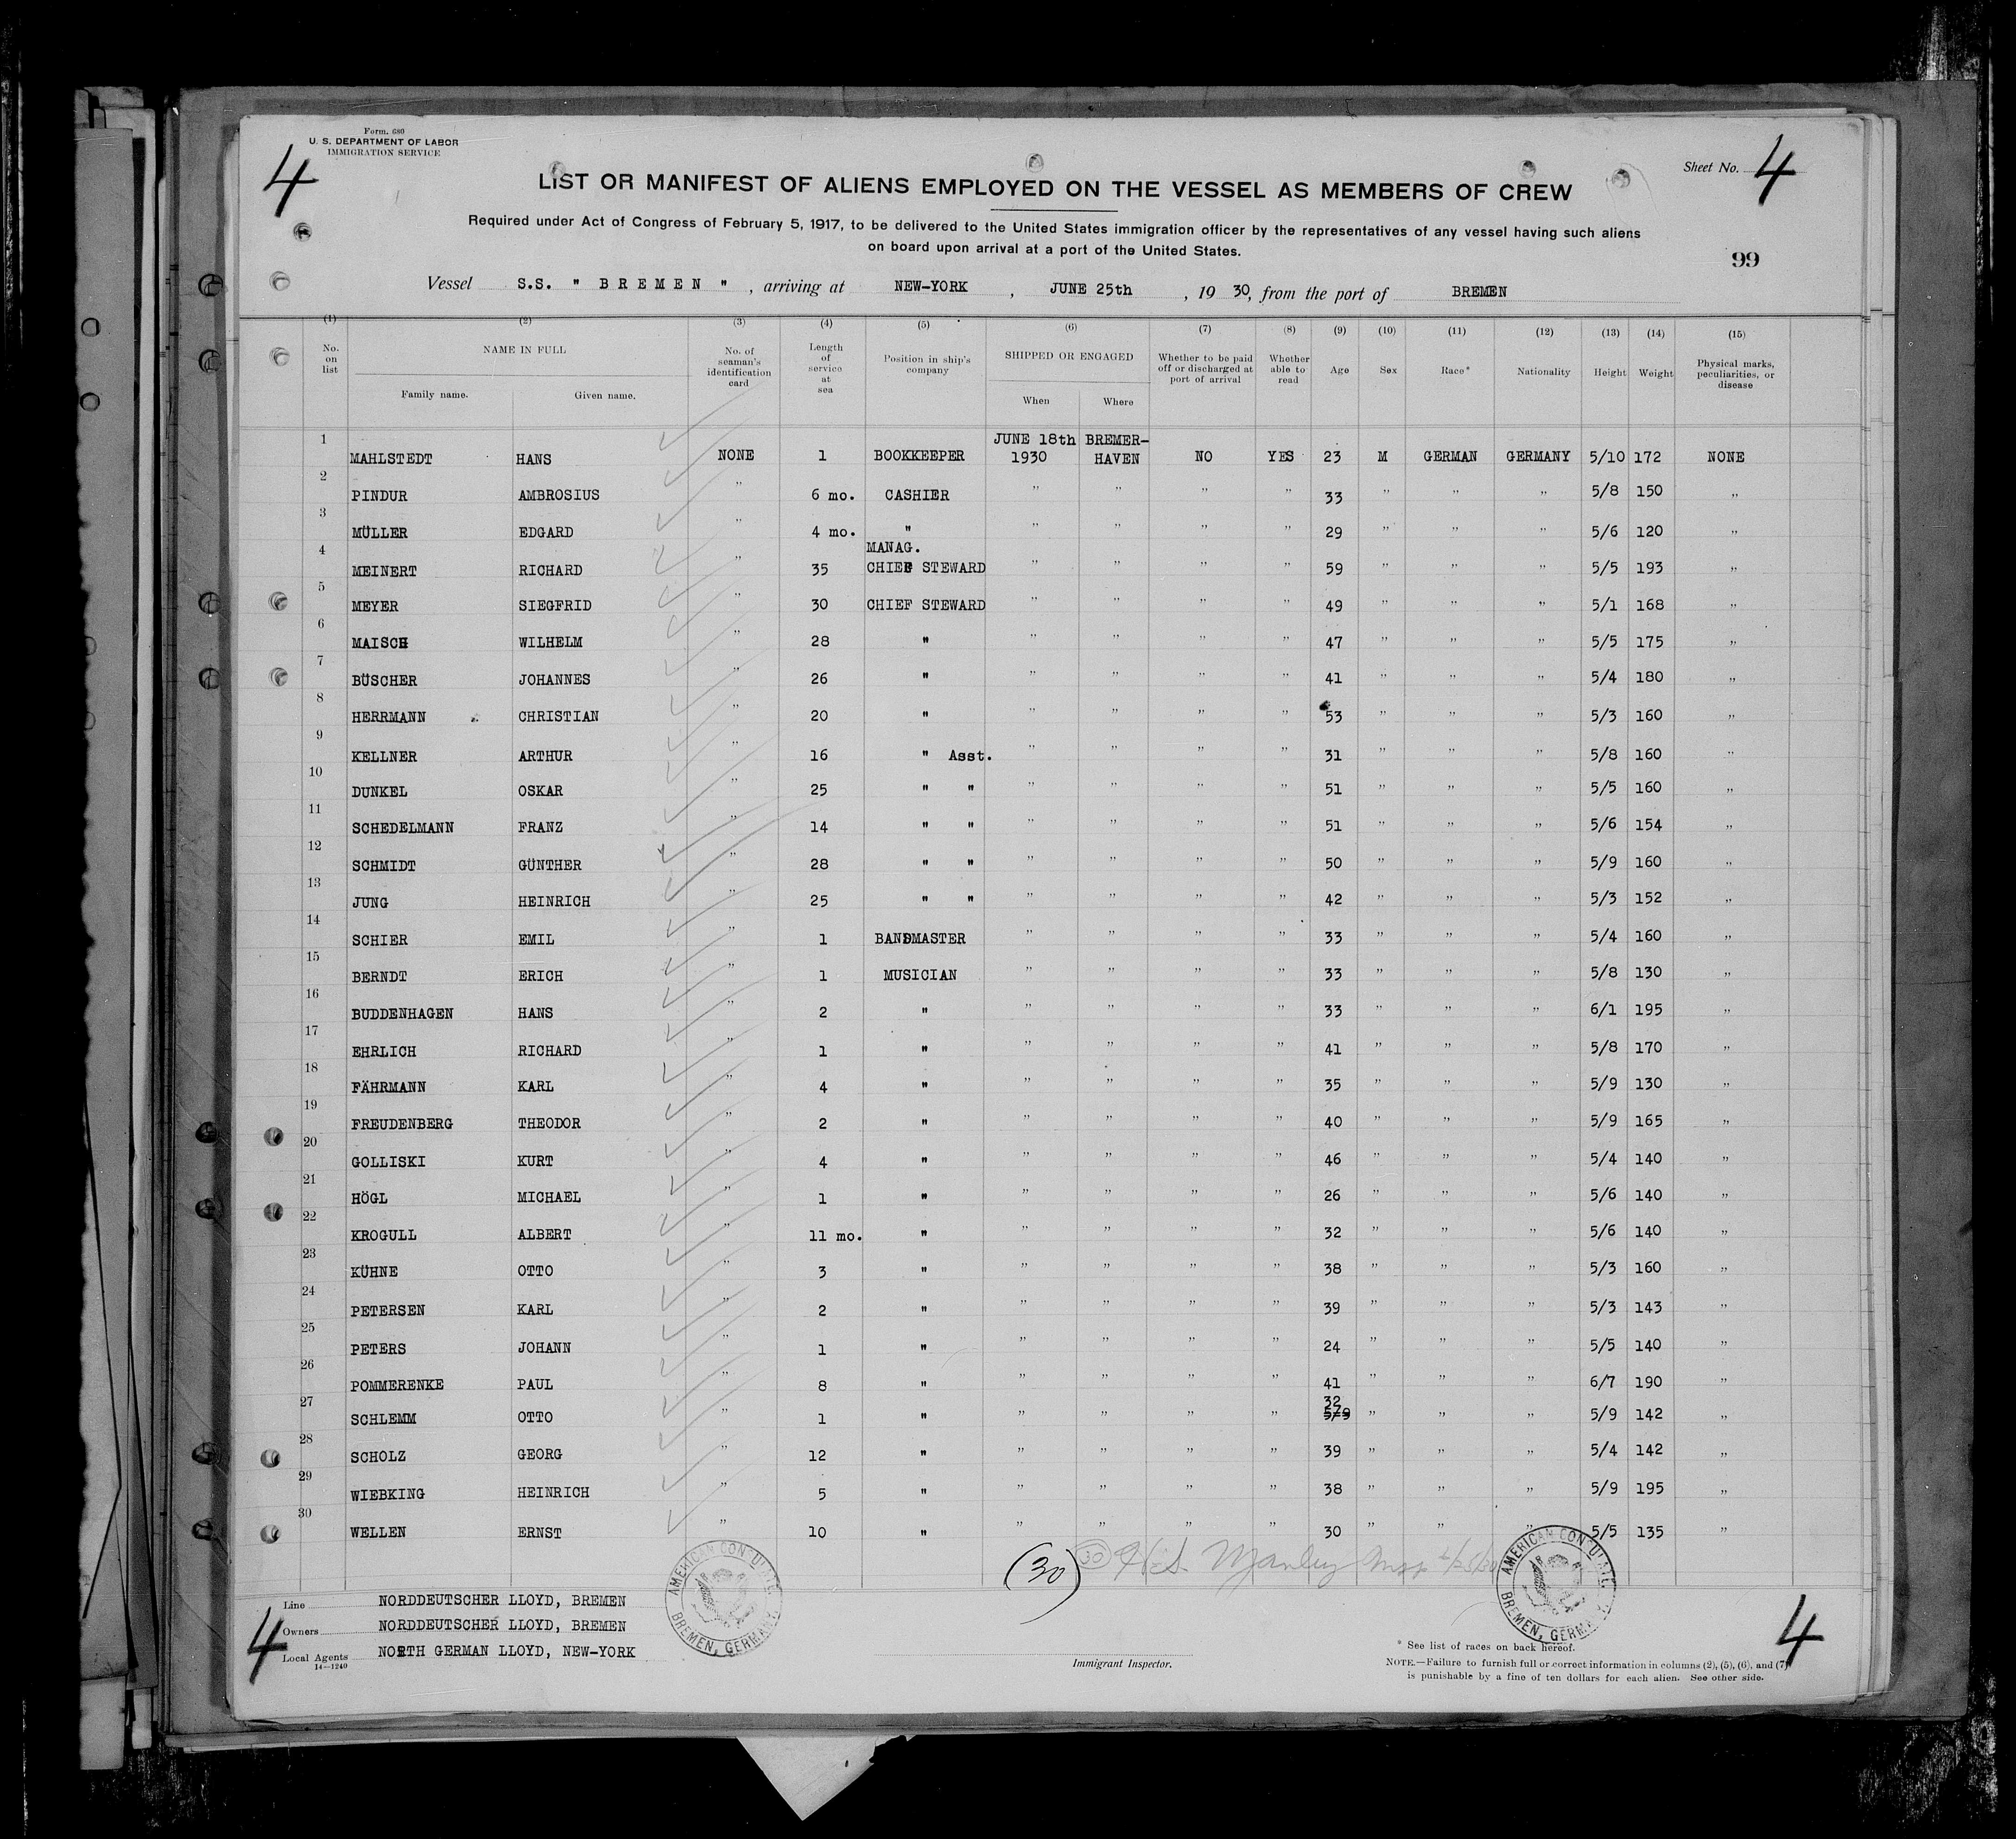 Form. 680
U. S. DEPARTMENT OF LABOR
IMMIGRATION SERVICE
4
Sheet No. 4
LIST OR MANIFEST OF ALIENS EMPLOYED ON THE VESSEL AS MEMBERS OF CREW
Required under Act of Congress of February 5, 1917, to be delivered to the United States immigration officer by the representatives of any vessel having such aliens
on board upon arrival at a port of the United States.
99
Vessel S.S. " B R E M E N " , arriving at NEW-YORK , JUNE 25th , 19 30, from the port of BREMEN
(1) (2) (3) (4) (5) (6) (7) (8) (9) (10) (11) (12) (13) (14) (15)
No. on list NAME IN FULL Family name. Given name. No. of seaman's identification card Length of service at sea Position in ship's company SHIPPED OR ENGAGED When Where Whether to be paid off or discharged at port of arrival Whether able to read Age Sex Race* Nationality Height Weight Physical marks, peculiarities, or disease
1 MAHLSTEDT HANS NONE 1 BOOKKEEPER JUNE 18th 1930 BREMER-HAVEN NO YES 23 M GERMAN GERMANY 5/10 172 NONE
2 PINDUR AMBROSIUS " 6 mo. CASHIER " " " " 33 " " " 5/8 150 "
3 MÜLLER EDGARD " 4 mo. " " " " " 29 " " " 5/6 120 "
4 MEINERT RICHARD " 35 MANAG. CHIEF STEWARD " " " " 59 " " " 5/5 193 "
5 MEYER SIEGFRID " 30 CHIEF STEWARD " " " " 49 " " " 5/1 168 "
6 MAISCH WILHELM " 28 " " " " " 47 " " " 5/5 175 "
7 BÜSCHER JOHANNES " 26 " " " " " 41 " " " 5/4 180 "
8 HERRMANN CHRISTIAN " 20 " " " " " 53 " " " 5/3 160 "
9 KELLNER ARTHUR " 16 " Asst. " " " " 31 " " " 5/8 160 "
10 DUNKEL OSKAR " 25 " " " " " " 51 " " " 5/5 160 "
11 SCHEDELMANN FRANZ " 14 " " " " " " 51 " " " 5/6 154 "
12 SCHMIDT GÜNTHER " 28 " " " " " " 50 " " " 5/9 160 "
13 JUNG HEINRICH " 25 " " " " " " 42 " " " 5/3 152 "
14 SCHIER EMIL " 1 BANDMASTER " " " " 33 " " " 5/4 160 "
15 BERNDT ERICH " 1 MUSICIAN " " " " 33 " " " 5/8 130 "
16 BUDDENHAGEN HANS " 2 " " " " " 33 " " " 6/1 195 "
17 EHRLICH RICHARD " 1 " " " " " 41 " " " 5/8 170 "
18 FÄHRMANN KARL " 4 " " " " " 35 " " " 5/9 130 "
19 FREUDENBERG THEODOR " 2 " " " " " 40 " " " 5/9 165 "
20 GOLLISKI KURT " 4 " " " " " 46 " " " 5/4 140 "
21 HÖGL MICHAEL " 1 " " " " " 26 " " " 5/6 140 "
22 KROGULL ALBERT " 11 mo. " " " " " 32 " " " 5/6 140 "
23 KÜHNE OTTO " 3 " " " " " 38 " " " 5/3 160 "
24 PETERSEN KARL " 2 " " " " " 39 " " " 5/3 143 "
25 PETERS JOHANN " 1 " " " " " 24 " " " 5/5 140 "
26 POMMERENKE PAUL " 8 " " " " " 41 " " " 6/7 190 "
27 SCHLEMM OTTO " 1 " " " " " 32 5/9 " " " 5/9 142 "
28 SCHOLZ GEORG " 12 " " " " " 39 " " " 5/4 142 "
29 WIEBKING HEINRICH " 5 " " " " " 38 " " " 5/9 195 "
30 WELLEN ERNST " 10 " " " " " 30 " " " 5/5 135 "
(30) 30
AMERICAN CONSULATE BREMEN, GERMANY
AMERICAN CONSULATE BREMEN, GERMANY
Line NORDDEUTSCHER LLOYD, BREMEN
Owners NORDDEUTSCHER LLOYD, BREMEN
Local Agents NORTH GERMAN LLOYD, NEW-YORK
14-1240
4
Immigrant Inspector.
* See list of races on back hereof.
NOTE.—Failure to furnish full or correct information in columns (2), (5), (6), and (7)
is punishable by a fine of ten dollars for each alien. See other side.
4